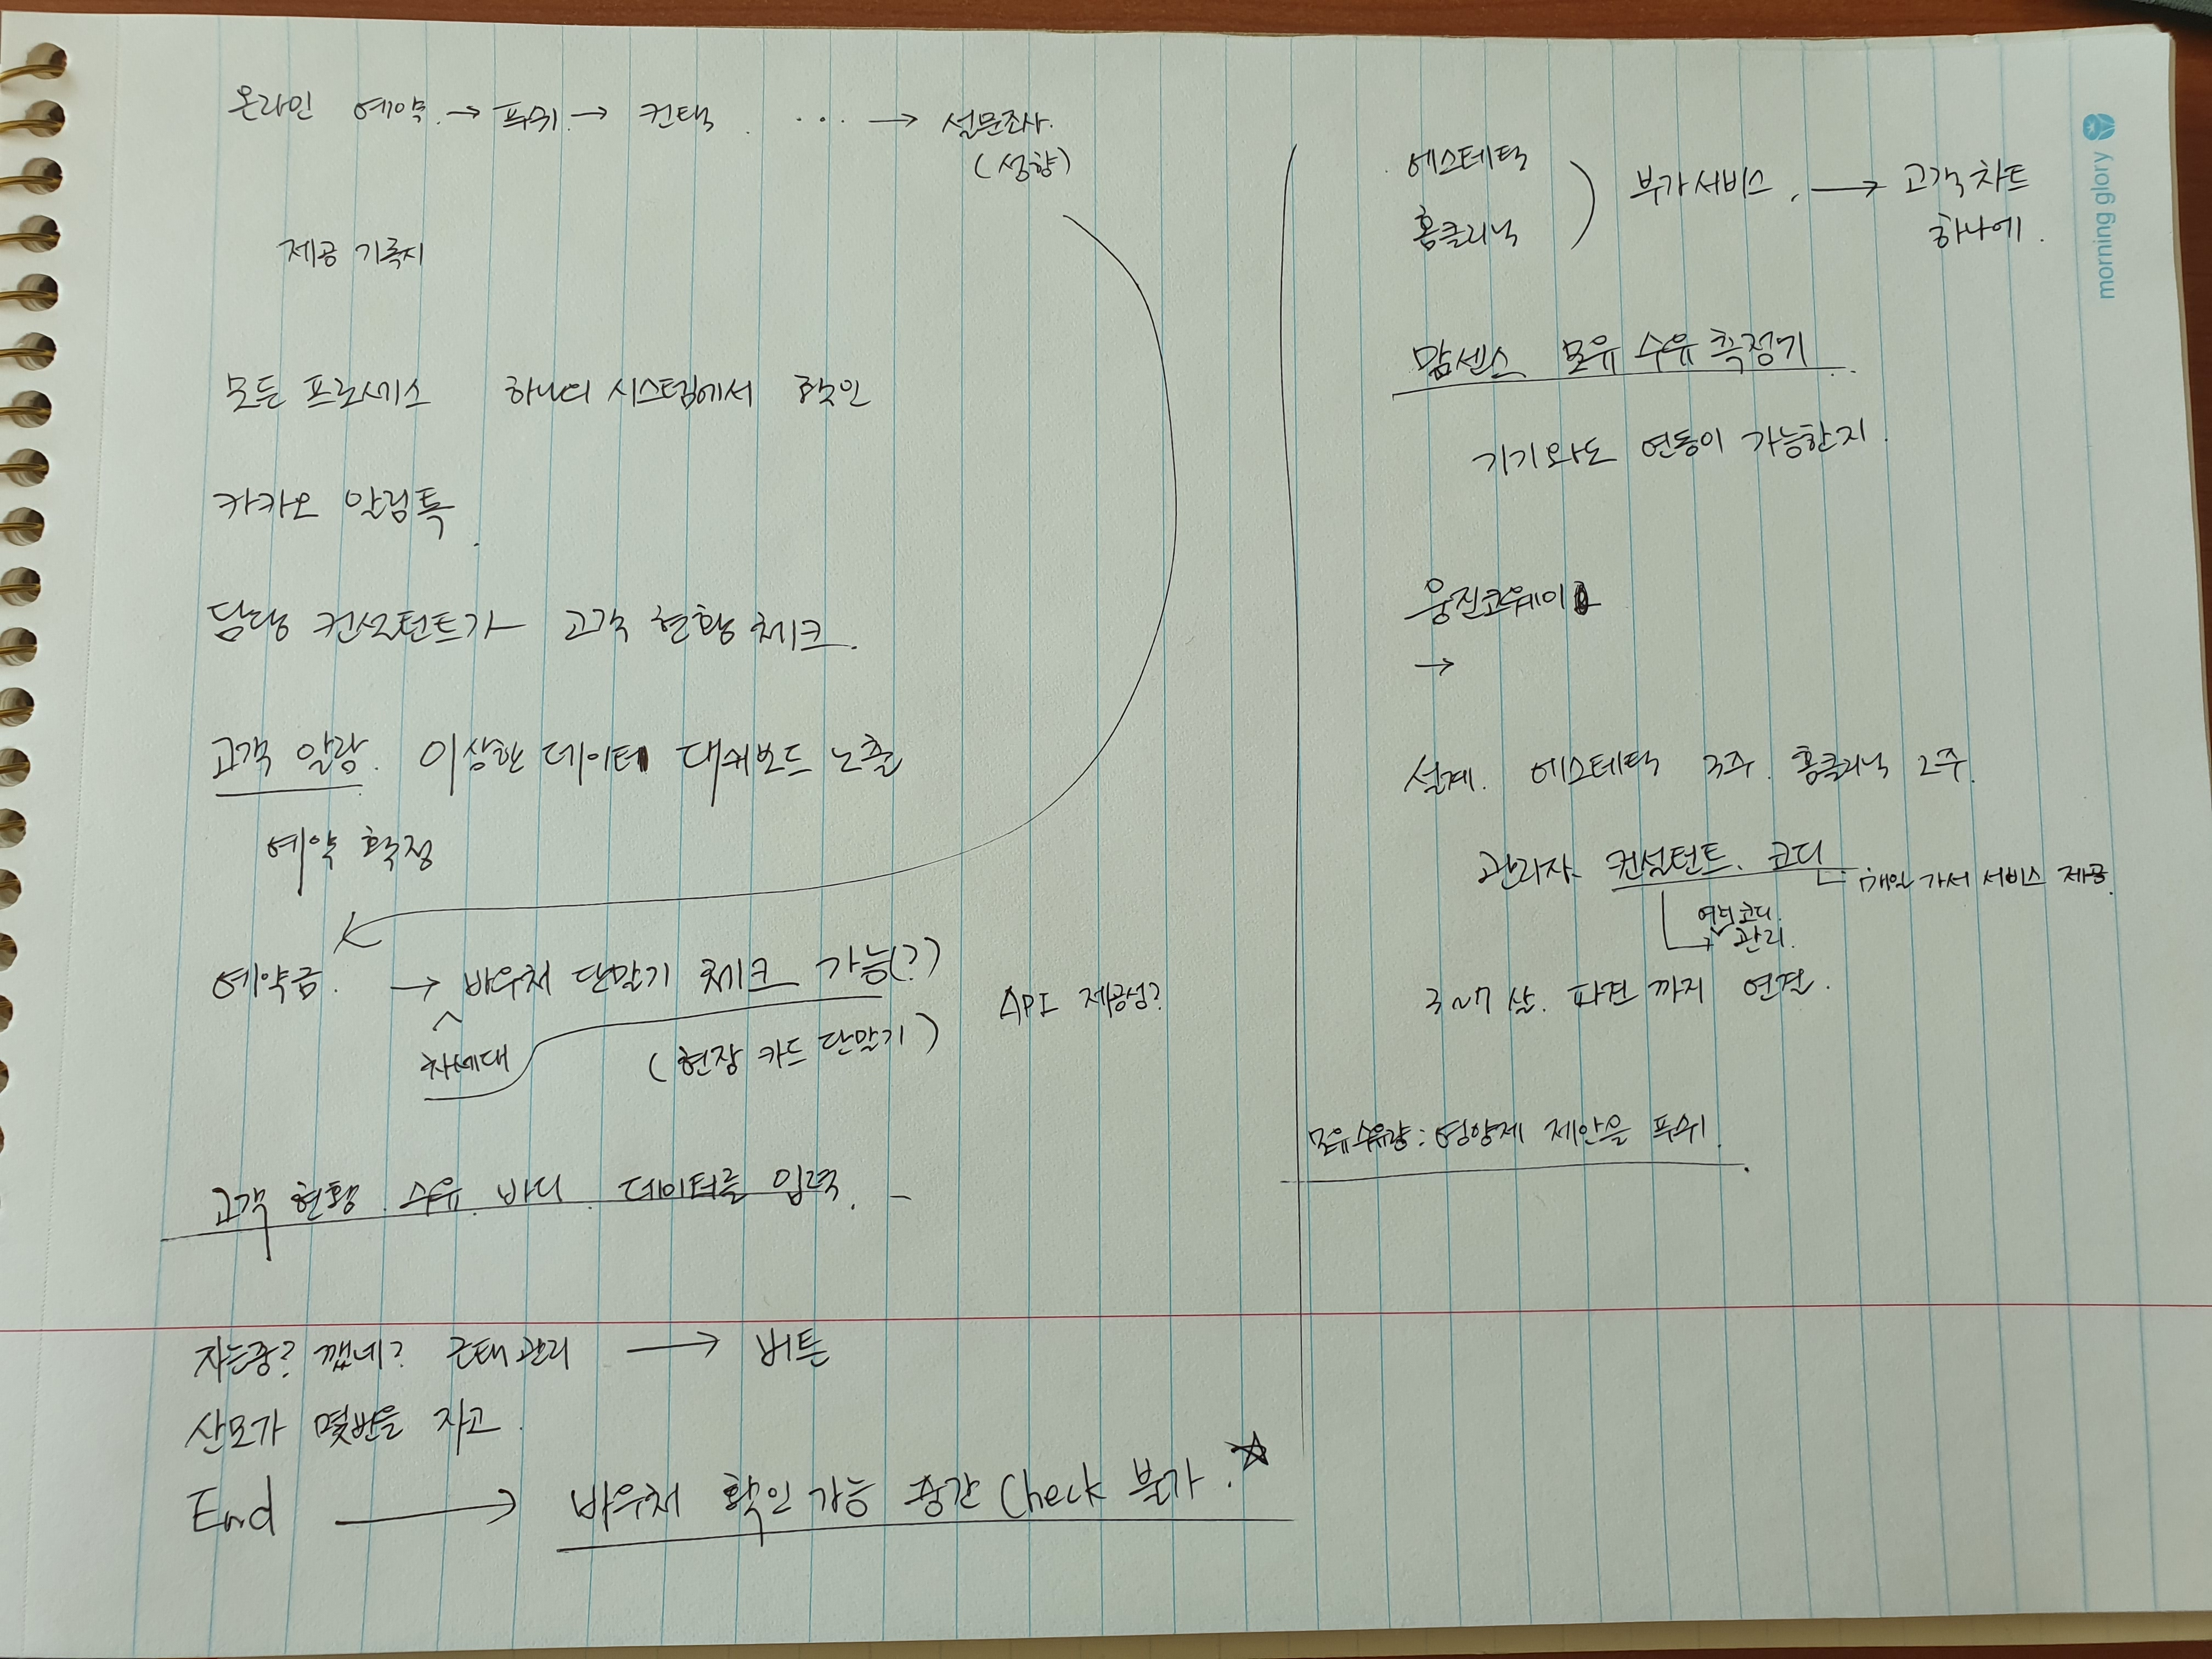 온라인 예약 → 푸쉬 → 컨택 ... → 설문조사.
(성향)
제공 기록지
모든 프로세스 하나의 시스템에서 확인
카카오 알림톡.
담당 컨설턴트가 고객 현황 체크.
고객 알람. 이상한 데이터 대쉬보드 노출
예약 확정
예약금. → 바우처 단말기 체크 가능(?)
차세대 (현장 카드 단말기) API 제공성?
고객 현황. 수유. 바디. 데이터를 입력.
자는중? 깼네? 근태관리 → 버튼
산모가 몇번을 자고.
End → 바우처 확인가능 중간 Check 불가. ☆
에스테틱
홈클리닉 ) 부가서비스. → 고객차트
하나에.
맘센스 모유 수유 측정기.
기기와도 연동이 가능한지.
웅진코웨이
→
설계. 에스테틱 3주. 홈클리닉 2주.
관리자. 컨설턴트. 코디
매일 가서 서비스 제공.
코디.
관리.
3~7살. 파견 까지 연결.
모유수유량: 영양제 제안을 푸쉬.
morning glory